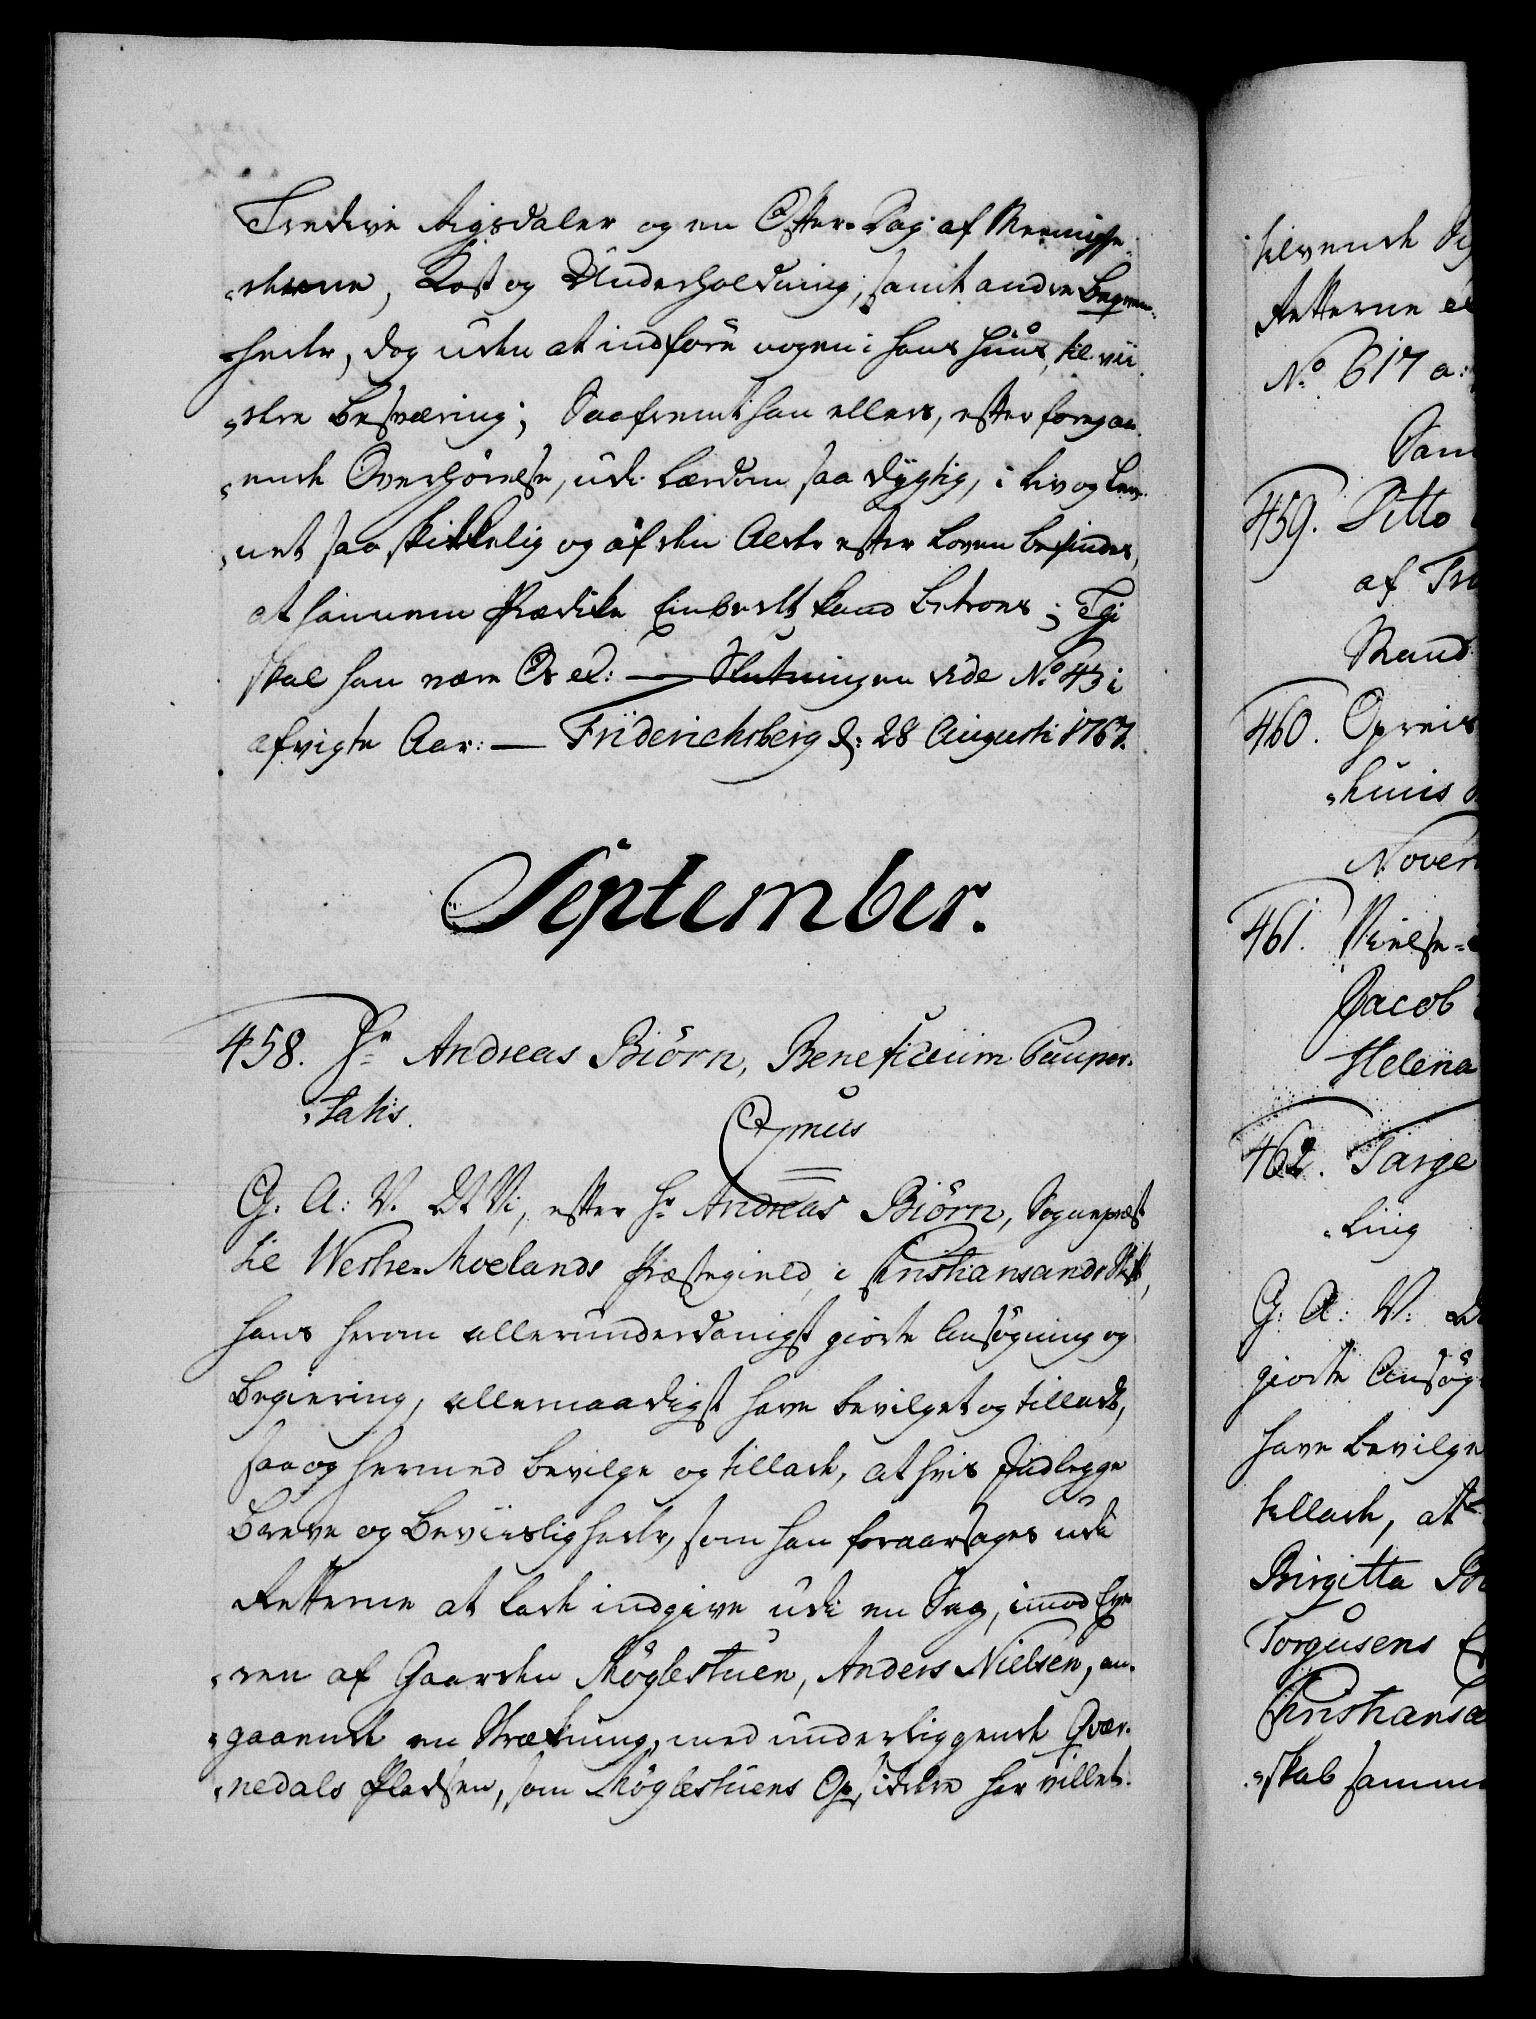 Tredive Rigsdaler og en Offer-Dag af Meenighe-
derne, Kost og Underholdning, samt andre Beqvem-
heder, dog uden at indføre nogen i hans Huus, til vii-
dere Besværing; Saafremt han ellers, efter foregaa-
ende Overhørelse, udi Lærdom saa dygtig, i Liv og Lev-
net saa skikkelig og af den Alder efter Loven befindes,
at hannem Prædike Embedet kand betroes; Thi
skal han være &c: — Slutningen vide No 43 i
afvigte Aar: — Friderichsberg d: 28 Augusti 1767.
September.
458. Hr Andreas Biörn, Beneficium Pauper-
tatis.
G. A: V. At Vi, efter Hr Andreas Biörn, Sognepræst
til Westre-Moelands Præstegield, i Christiansands Stift,
hans herom allerunderdanigst giorte Ansøgning og
Begiering, allernaadigst have bevilget og tilladt,
saa og hermed bevilge og tillade, at hvis Indlegge
Breve og Beviisligheder, som han foraarsages udi
Retterne at lade indgive udi en Sag, imod Eye-
ren af Gaarden Møglestuen, Anders Nielsen, an-
gaaende en Strækning, med underliggende Qvær-
nedals Pladsen, som Møglestuens Opsiddere har villet
tilvende
Retterne
No 617 a:
459. Ditto
af
Mand
460. Opreis
huus
Novem
461. Vielse-
Jacob
Helena
462. Targe
ling
G: A: V:
giorte Ansøg
have bevilge
tillade, at
Birgitta
Torgusens
Christiansa
skab samme